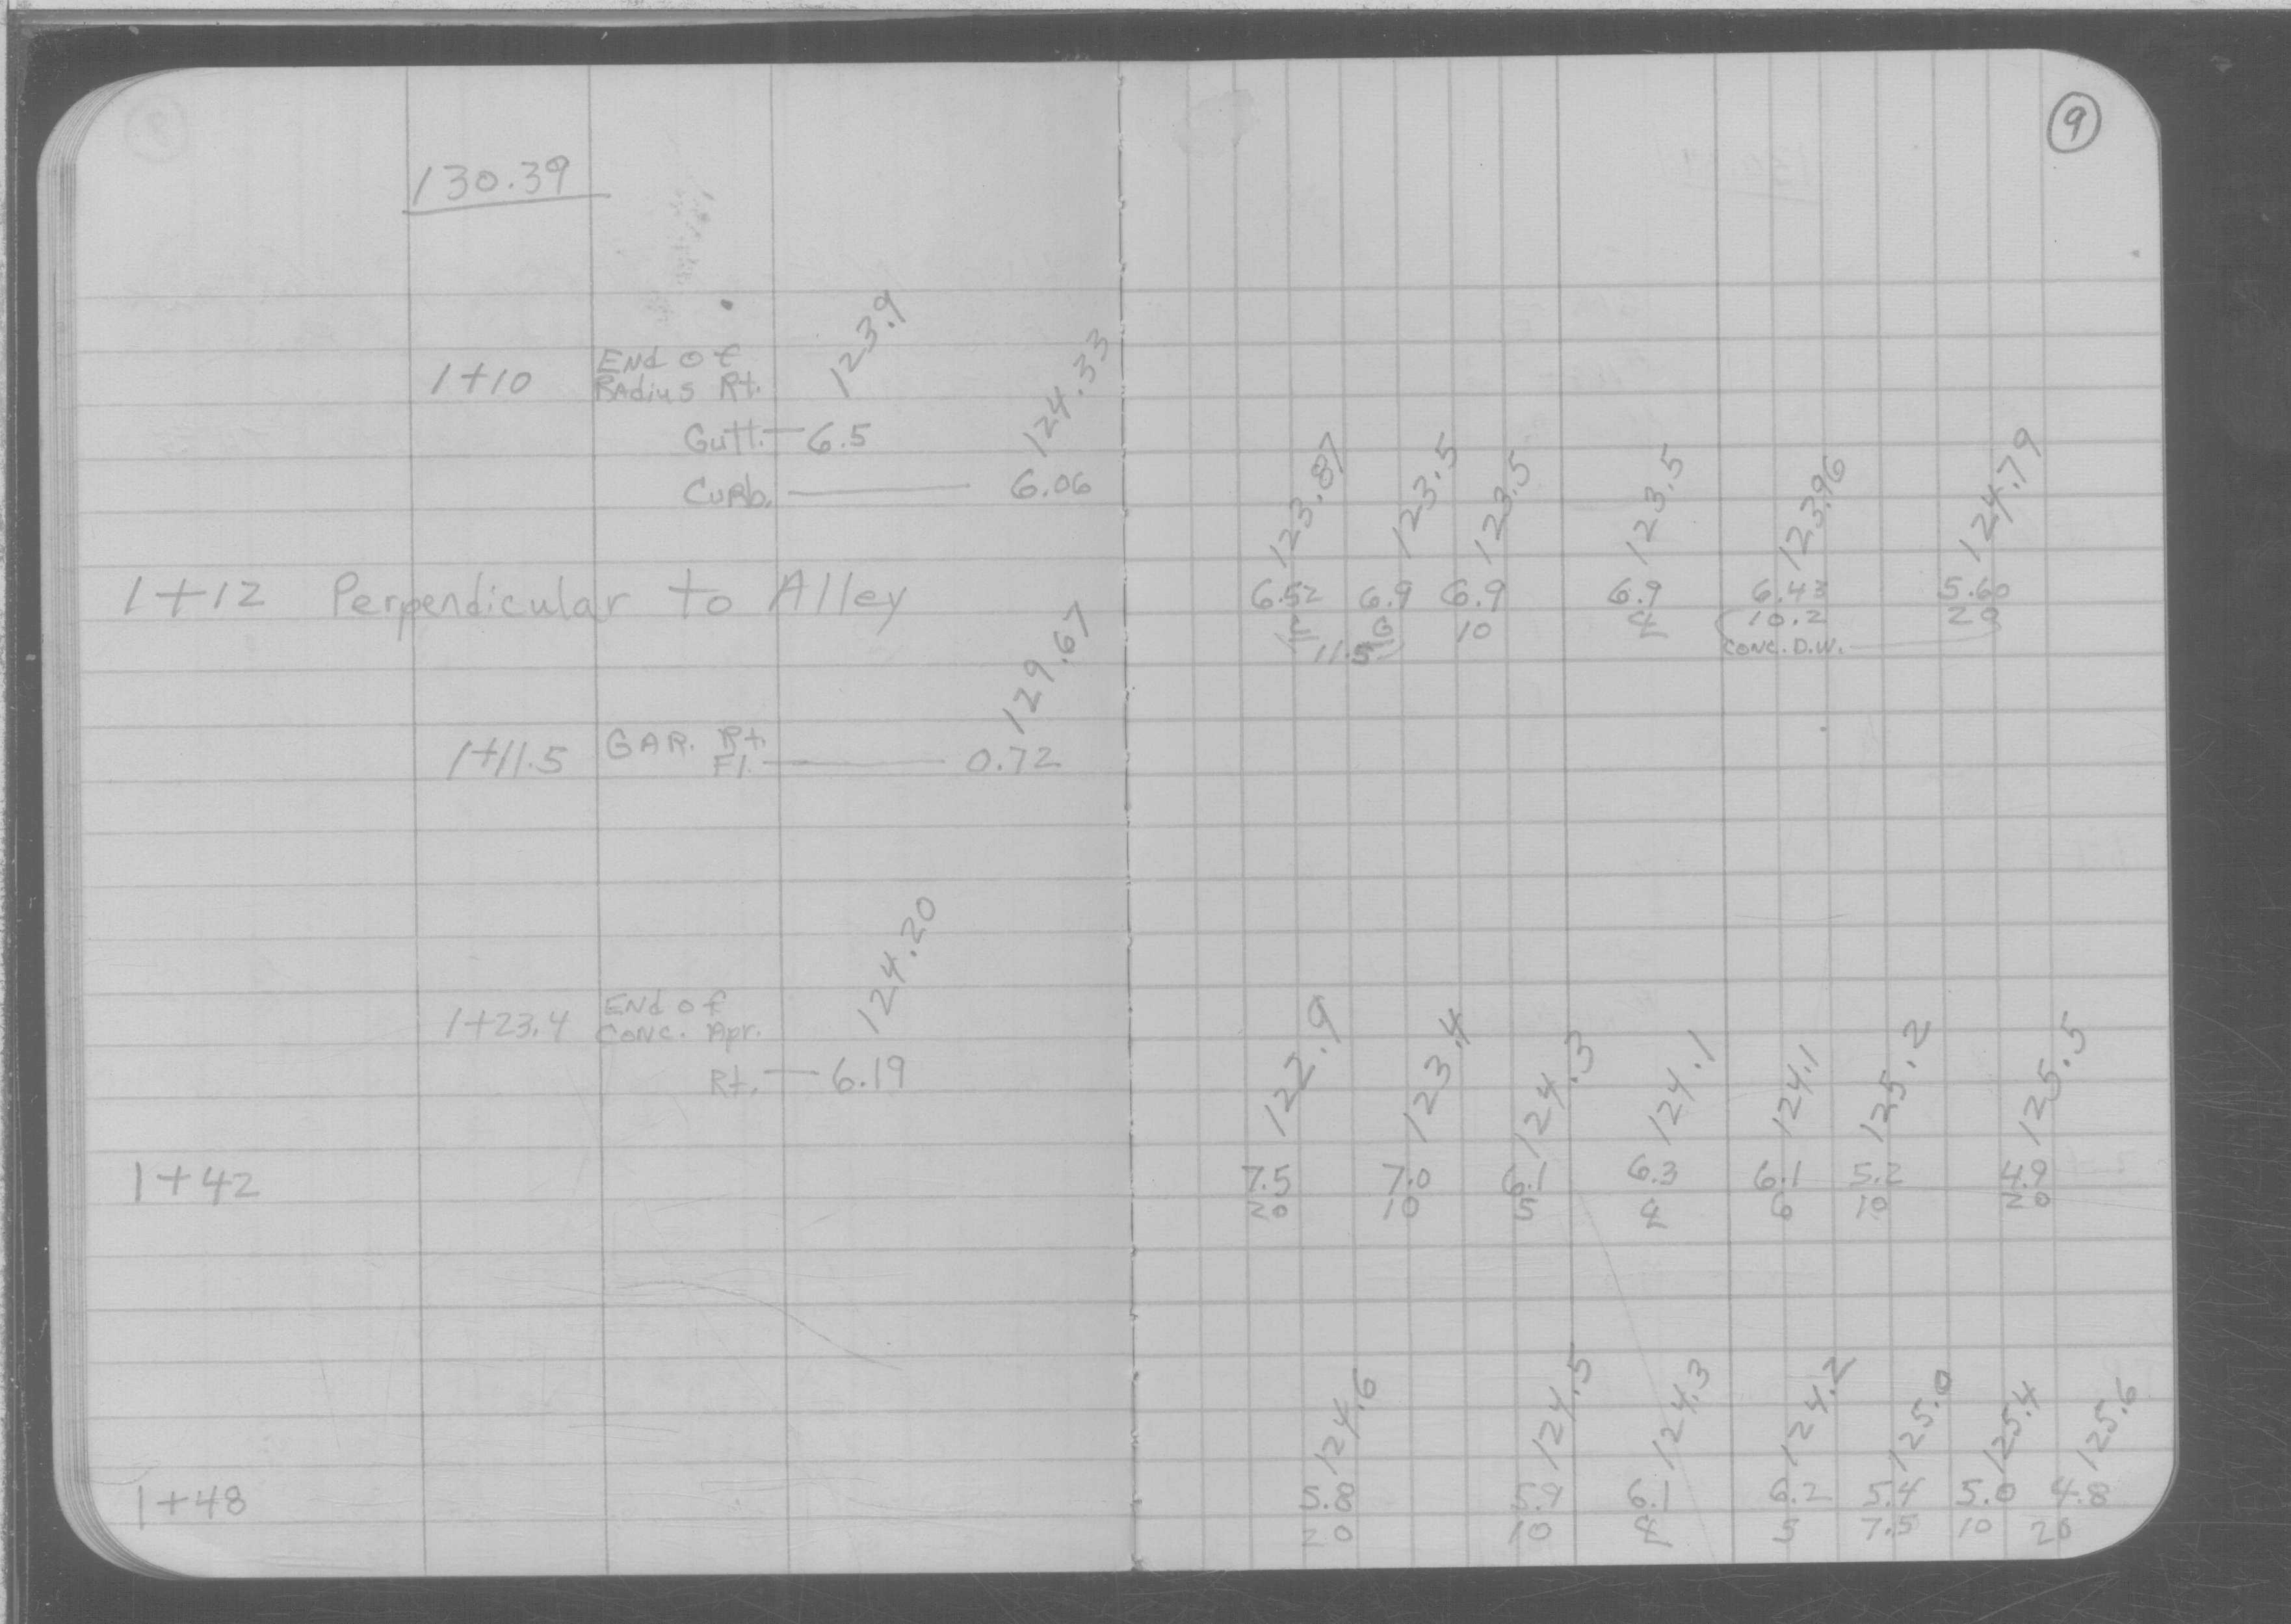 9
130.39
123.9
1+10 End of
Radius Rt.
124.33
Gutt. — 6.5
Curb. — 6.06
123.87 123.5 123.5 123.5 123.96 124.79
1+12 Perpendicular to Alley 6.52 6.9 6.9 6.9 6.43 5.60
C G 10 ℄ 10.2 20
11.5 CONC. D.W.
129.67
1+11.5 GAR. Rt.
Fl. — 0.72
124.20
1+23.4 End of
Conc. Apr.
Rt. — 6.19
122.9 123.4 124.3 124.1 124.1 125.2 125.5
1+42 7.5 7.0 6.1 6.3 6.1 5.2 4.9
20 10 5 ℄ 6 10 20
124.6 124.5 124.3 124.2 125.0 125.4 125.6
1+48 5.8 5.9 6.1 6.2 5.4 5.0 4.8
20 10 ℄ 5 7.5 10 20